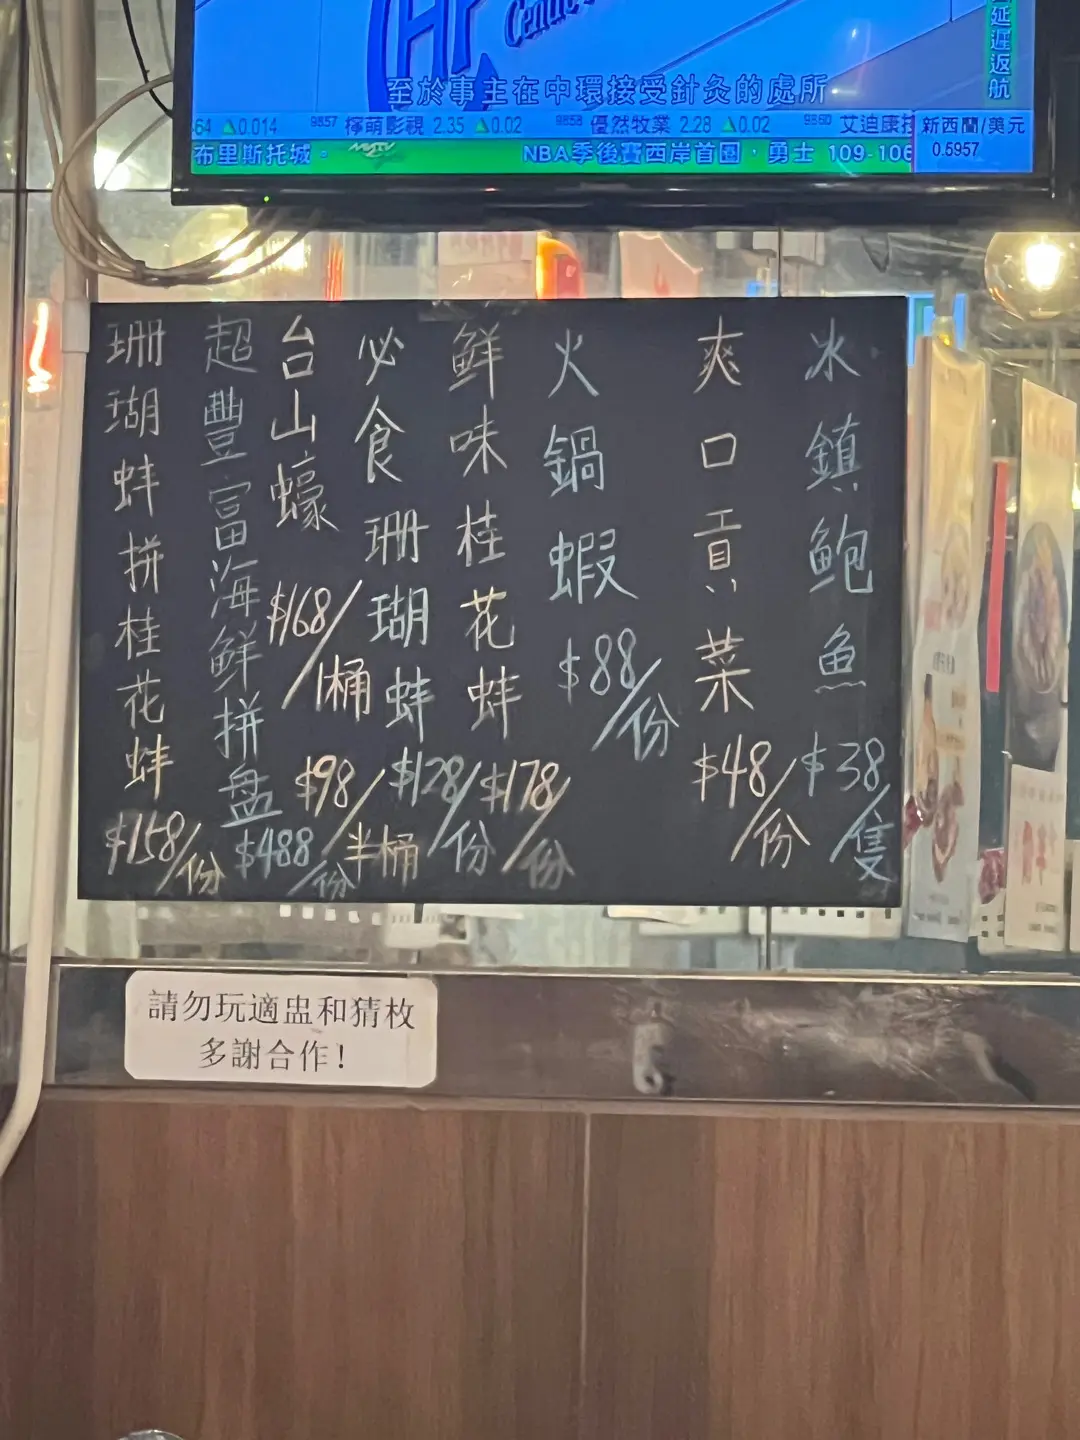 延遲返航
至於事主在中環接受針灸的處所
64 ▲0.014 9857 檸萌影視 2.35 ▲0.02 9858 優然牧業 2.28 ▲0.02 9860 艾迪康控
新西蘭/美元
0.5957
布里斯托城。
NBA季後賽西岸首圈，勇士 109-106
冰鎮鮑魚 $38/隻
爽口貢菜 $48/份
火鍋蝦 $88/份
鮮味桂花蚌 $178/份
必食珊瑚蚌 $128/份
台山蠔 $168/1桶
$98/半桶
超豐富海鮮拼盤 $488/份
珊瑚蚌拼桂花蚌 $158/份
請勿玩適盅和猜枚
多謝合作！